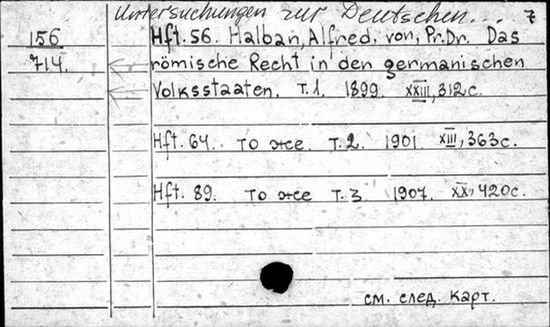 Untersuchungen zur Deutschen... 7
156
714.
Hft. 56. Halban, Alfred, von, Pr. Dr. Das
römische Recht in den germanischen
Volksstaaten. т. 1. 1899. XXIII, 312 с.
Hft. 64. то же. т. 2. 1901. XIII, 363 с.
Hft. 89. то же т. 3 1907. XX, 420 с.
см. след. карт.